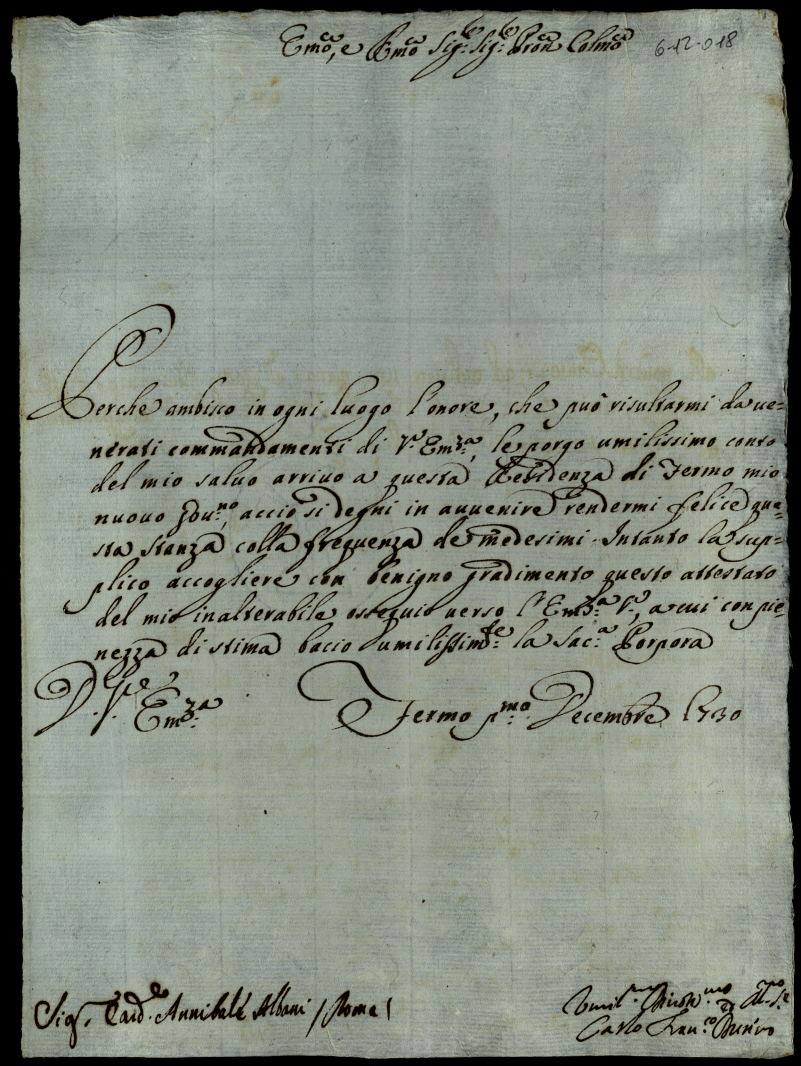 Emo, e Rmo Sigr. Sigr. Pron Colmo
6-12-018
Perche ambisco in ogni luogo l'onore, che può risultarmi da ve=
nerati commandamenti di Vra Emza, le porgo umilissimo conto
del mio salvo arrivo a questa Residenza di Fermo mio
nuovo Gouno, acciò si degni in avvenire rendermi felice que=
sta stanza colla frequenza de medesimi. Intanto la sup=
plico accogliere con benigno gradimento questo attestato
del mio inalterabile ossequio verso l'Emza Vra, a cui con pie=
nezza di stima bacio umilissimte la Saca Porpora
D. V.
Emza
Fermo pmo Decembre 1730
Sigr. Cardle Annibale Albani / Roma /
Umilmo
Carlo Franco